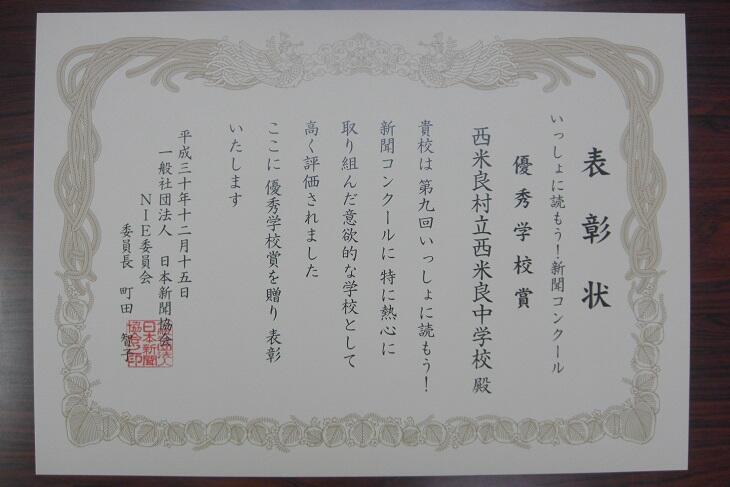 表彰状
いっしょに読もう！新聞コンクール
優秀学校賞
西米良村立西米良中学校 殿
貴校は 第九回いっしょに読もう！
新聞コンクールに 特に熱心に
取り組んだ意欲的な学校として
高く評価されました
ここに 優秀学校賞を贈り 表彰
いたします
平成三十年十二月十五日
一般社団法人 日本新聞協会
ＮＩＥ委員会
委員長 町田 智子